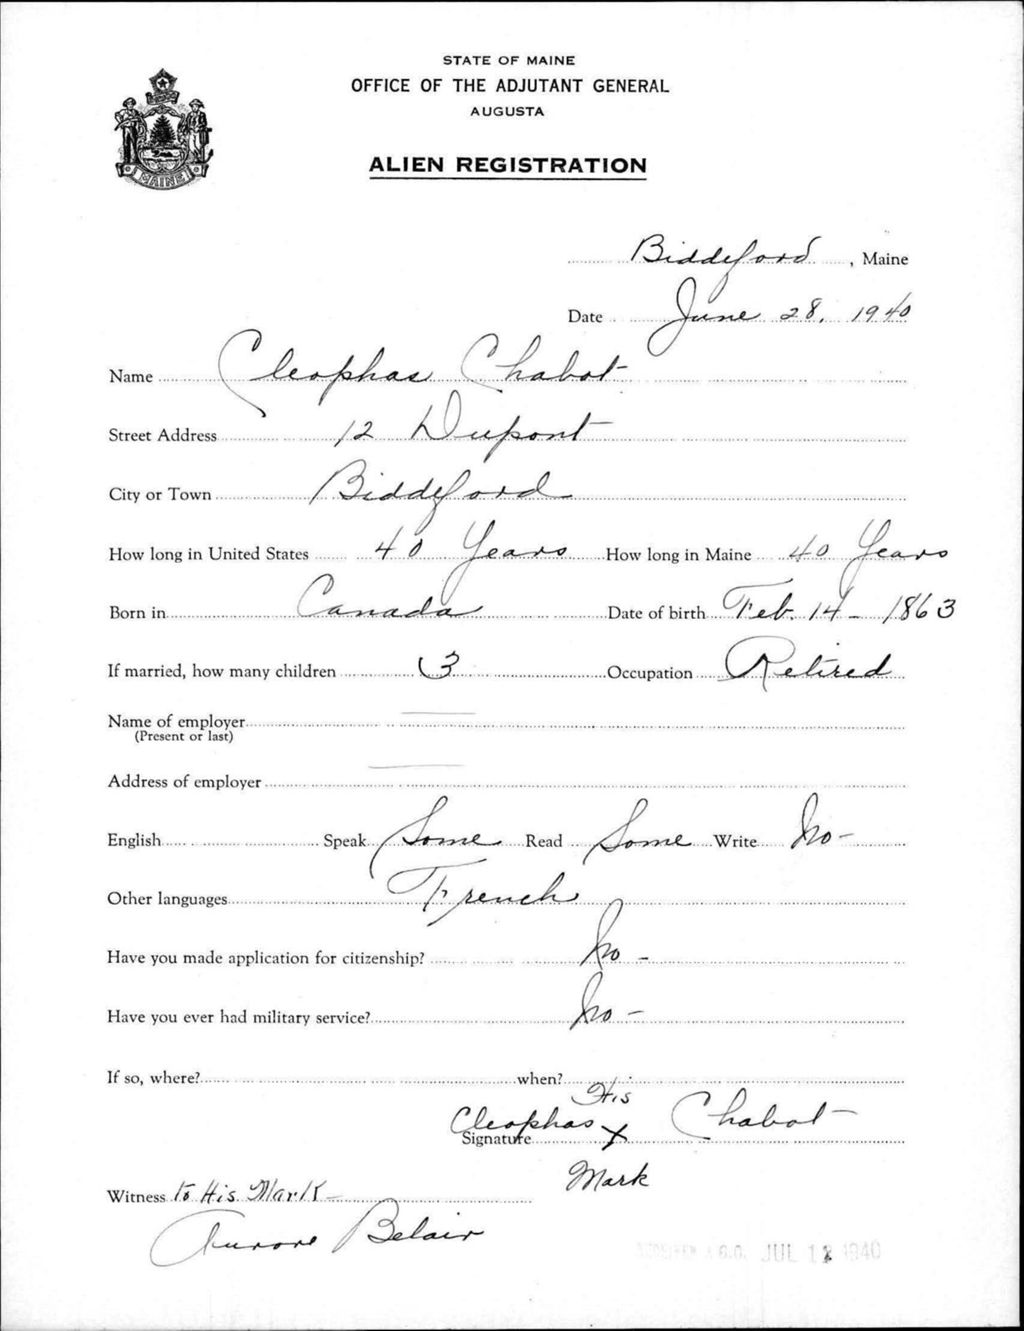 STATE OF MAINE
OFFICE OF THE ADJUTANT GENERAL
AUGUSTA
ALIEN REGISTRATION
MAINE
Biddeford, Maine
Date June 28, 1940
Name Cleophas Chabot
Street Address 12 Dupont
City or Town Biddeford
How long in United States 40 Years How long in Maine 40 Years
Born in Canada Date of birth Feb. 14 - 1863
If married, how many children 3 Occupation Retired
Name of employer
(Present or last)
Address of employer
English Speak Some Read Some Write No -
Other languages French
Have you made application for citizenship? No -
Have you ever had military service? No -
If so, where? when?
His
Cleophas X Chabot
Signature
Mark
Witness to His Mark -
Aurore Belair
A.G.O. JUL 12 1940